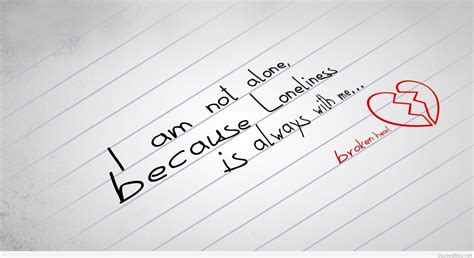 I am not alone,
because Loneliness
is always with me...
broken heart
QuotesBlox.net